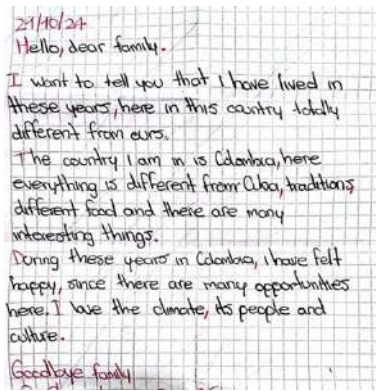 21/10/24
Hello, dear family.
I want to tell you that I have lived in
these years, here in this country totally
different from ours.
The country I am in is Colombia, here
everything is different from Cuba, traditions,
different food and there are many
interesting things.
During these years in Colombia, I have felt
happy, since there are many opportunities
here. I love the climate, its people and
culture.
Goodbye family